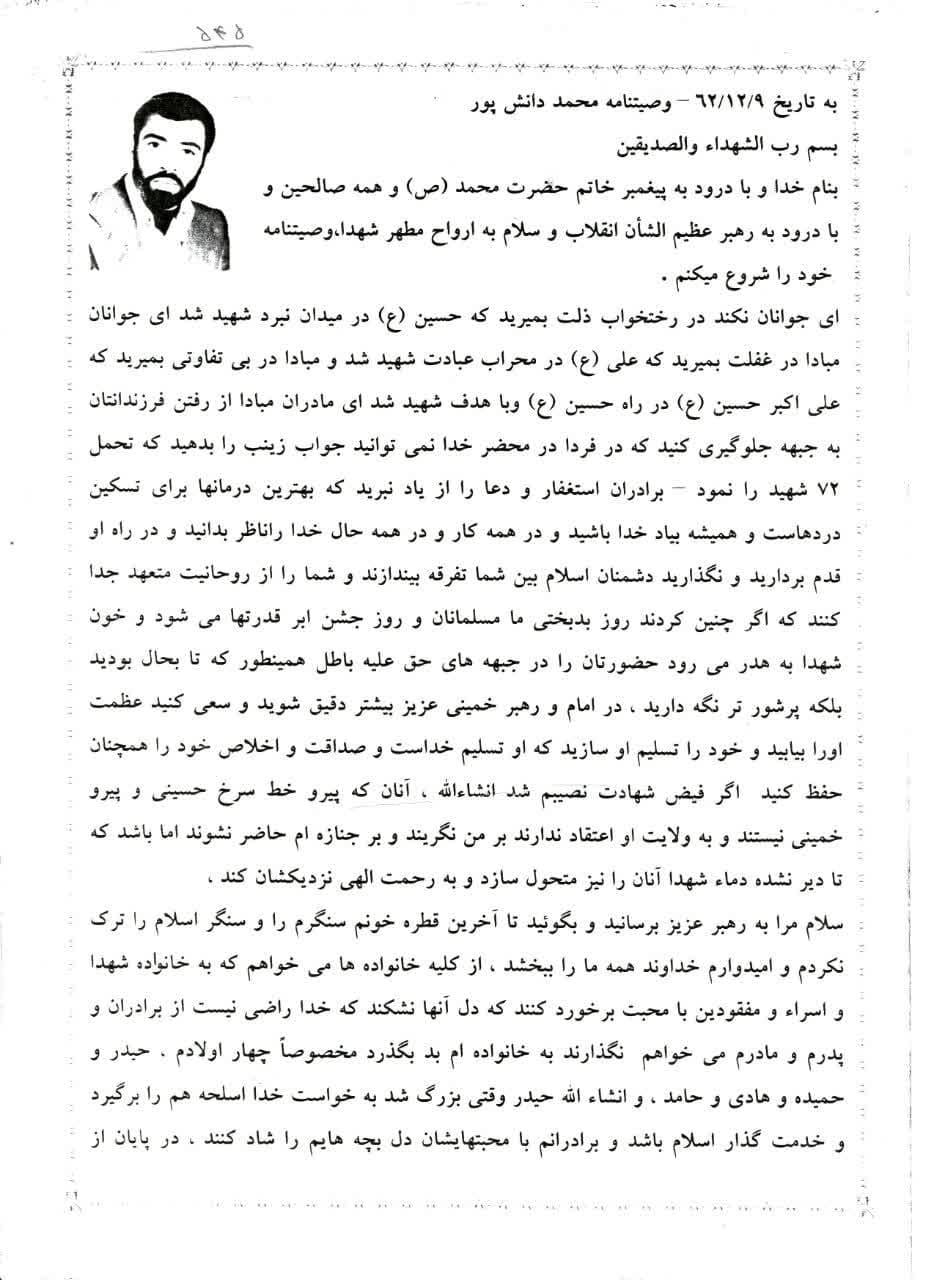 ۵۴۵
به تاریخ ٦٢/١٢/٩ – وصیتنامه محمد دانش پور
بسم رب الشهداء والصدیقین
بنام خدا و با درود به پیغمبر خاتم حضرت محمد (ص) و همه صالحین و
با درود به رهبر عظیم الشأن انقلاب و سلام به ارواح مطهر شهدا،وصیتنامه
خود را شروع میکنم .
ای جوانان نکند در رختخواب ذلت بمیرید که حسین (ع) در میدان نبرد شهید شد ای جوانان
مبادا در غفلت بمیرید که علی (ع) در محراب عبادت شهید شد و مبادا در بی تفاوتی بمیرید که
علی اکبر حسین (ع) در راه حسین (ع) وبا هدف شهید شد ای مادران مبادا از رفتن فرزندانتان
به جبهه جلوگیری کنید که در فردا در محضر خدا نمی توانید جواب زینب را بدهید که تحمل
٧٢ شهید را نمود – برادران استغفار و دعا را از یاد نبرید که بهترین درمانها برای تسکین
دردهاست و همیشه بیاد خدا باشید و در همه کار و در همه حال خدا راناظر بدانید و در راه او
قدم بردارید و نگذارید دشمنان اسلام بین شما تفرقه بیندازند و شما را از روحانیت متعهد جدا
کنند که اگر چنین کردند روز بدبختی ما مسلمانان و روز جشن ابر قدرتها می شود و خون
شهدا به هدر می رود حضورتان را در جبهه های حق علیه باطل همینطور که تا بحال بودید
بلکه پرشور تر نگه دارید ، در امام و رهبر خمینی عزیز بیشتر دقیق شوید و سعی کنید عظمت
اورا بیابید و خود را تسلیم او سازید که او تسلیم خداست و صداقت و اخلاص خود را همچنان
حفظ کنید اگر فیض شهادت نصیبم شد انشاءالله ، آنان که پیرو خط سرخ حسینی و پیرو
خمینی نیستند و به ولایت او اعتقاد ندارند بر من نگریند و بر جنازه ام حاضر نشوند اما باشد که
تا دیر نشده دماء شهدا آنان را نیز متحول سازد و به رحمت الهی نزدیکشان کند ،
سلام مرا به رهبر عزیز برسانید و بگوئید تا آخرین قطره خونم سنگرم را و سنگر اسلام را ترک
نکردم و امیدوارم خداوند همه ما را ببخشد ، از کلیه خانواده ها می خواهم که به خانواده شهدا
و اسراء و مفقودین با محبت برخورد کنند که دل آنها نشکند که خدا راضی نیست از برادران و
پدرم و مادرم می خواهم نگذارند به خانواده ام بد بگذرد مخصوصاً چهار اولادم ، حیدر و
حمیده و هادی و حامد ، و انشاء الله حیدر وقتی بزرگ شد به خواست خدا اسلحه هم را برگیرد
و خدمت گذار اسلام باشد و برادرانم با محبتهایشان دل بچه هایم را شاد کنند ، در پایان از